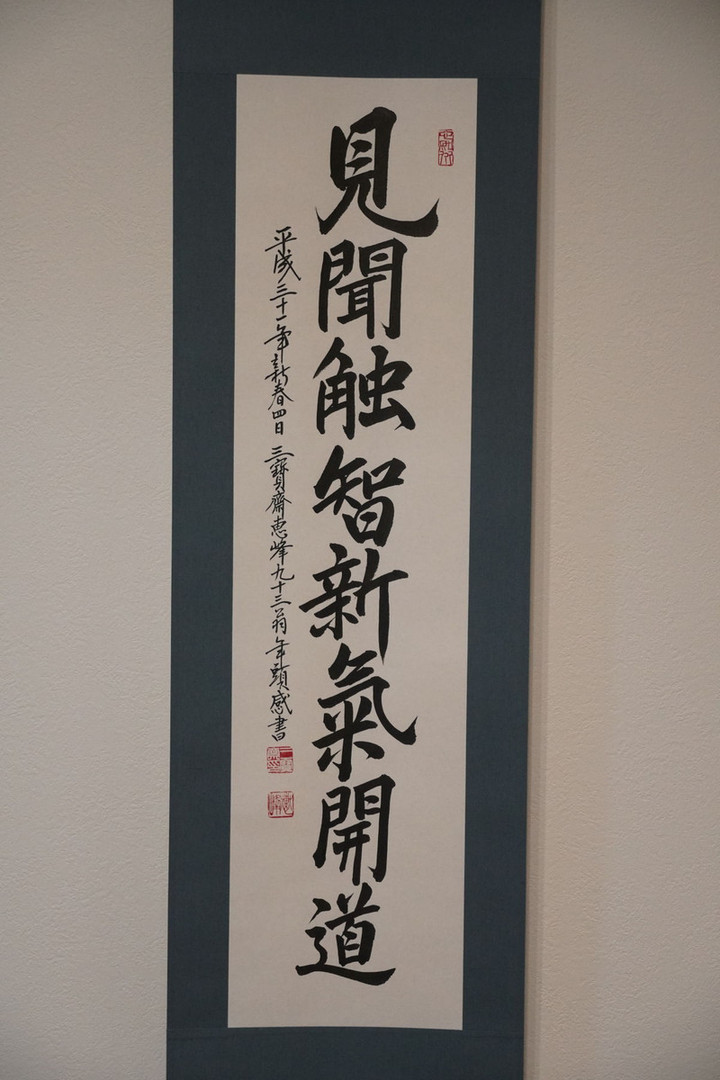 見聞触智新氣開道
平成三十一年新春四日 三寶齋恵峰九十三翁年頭感書